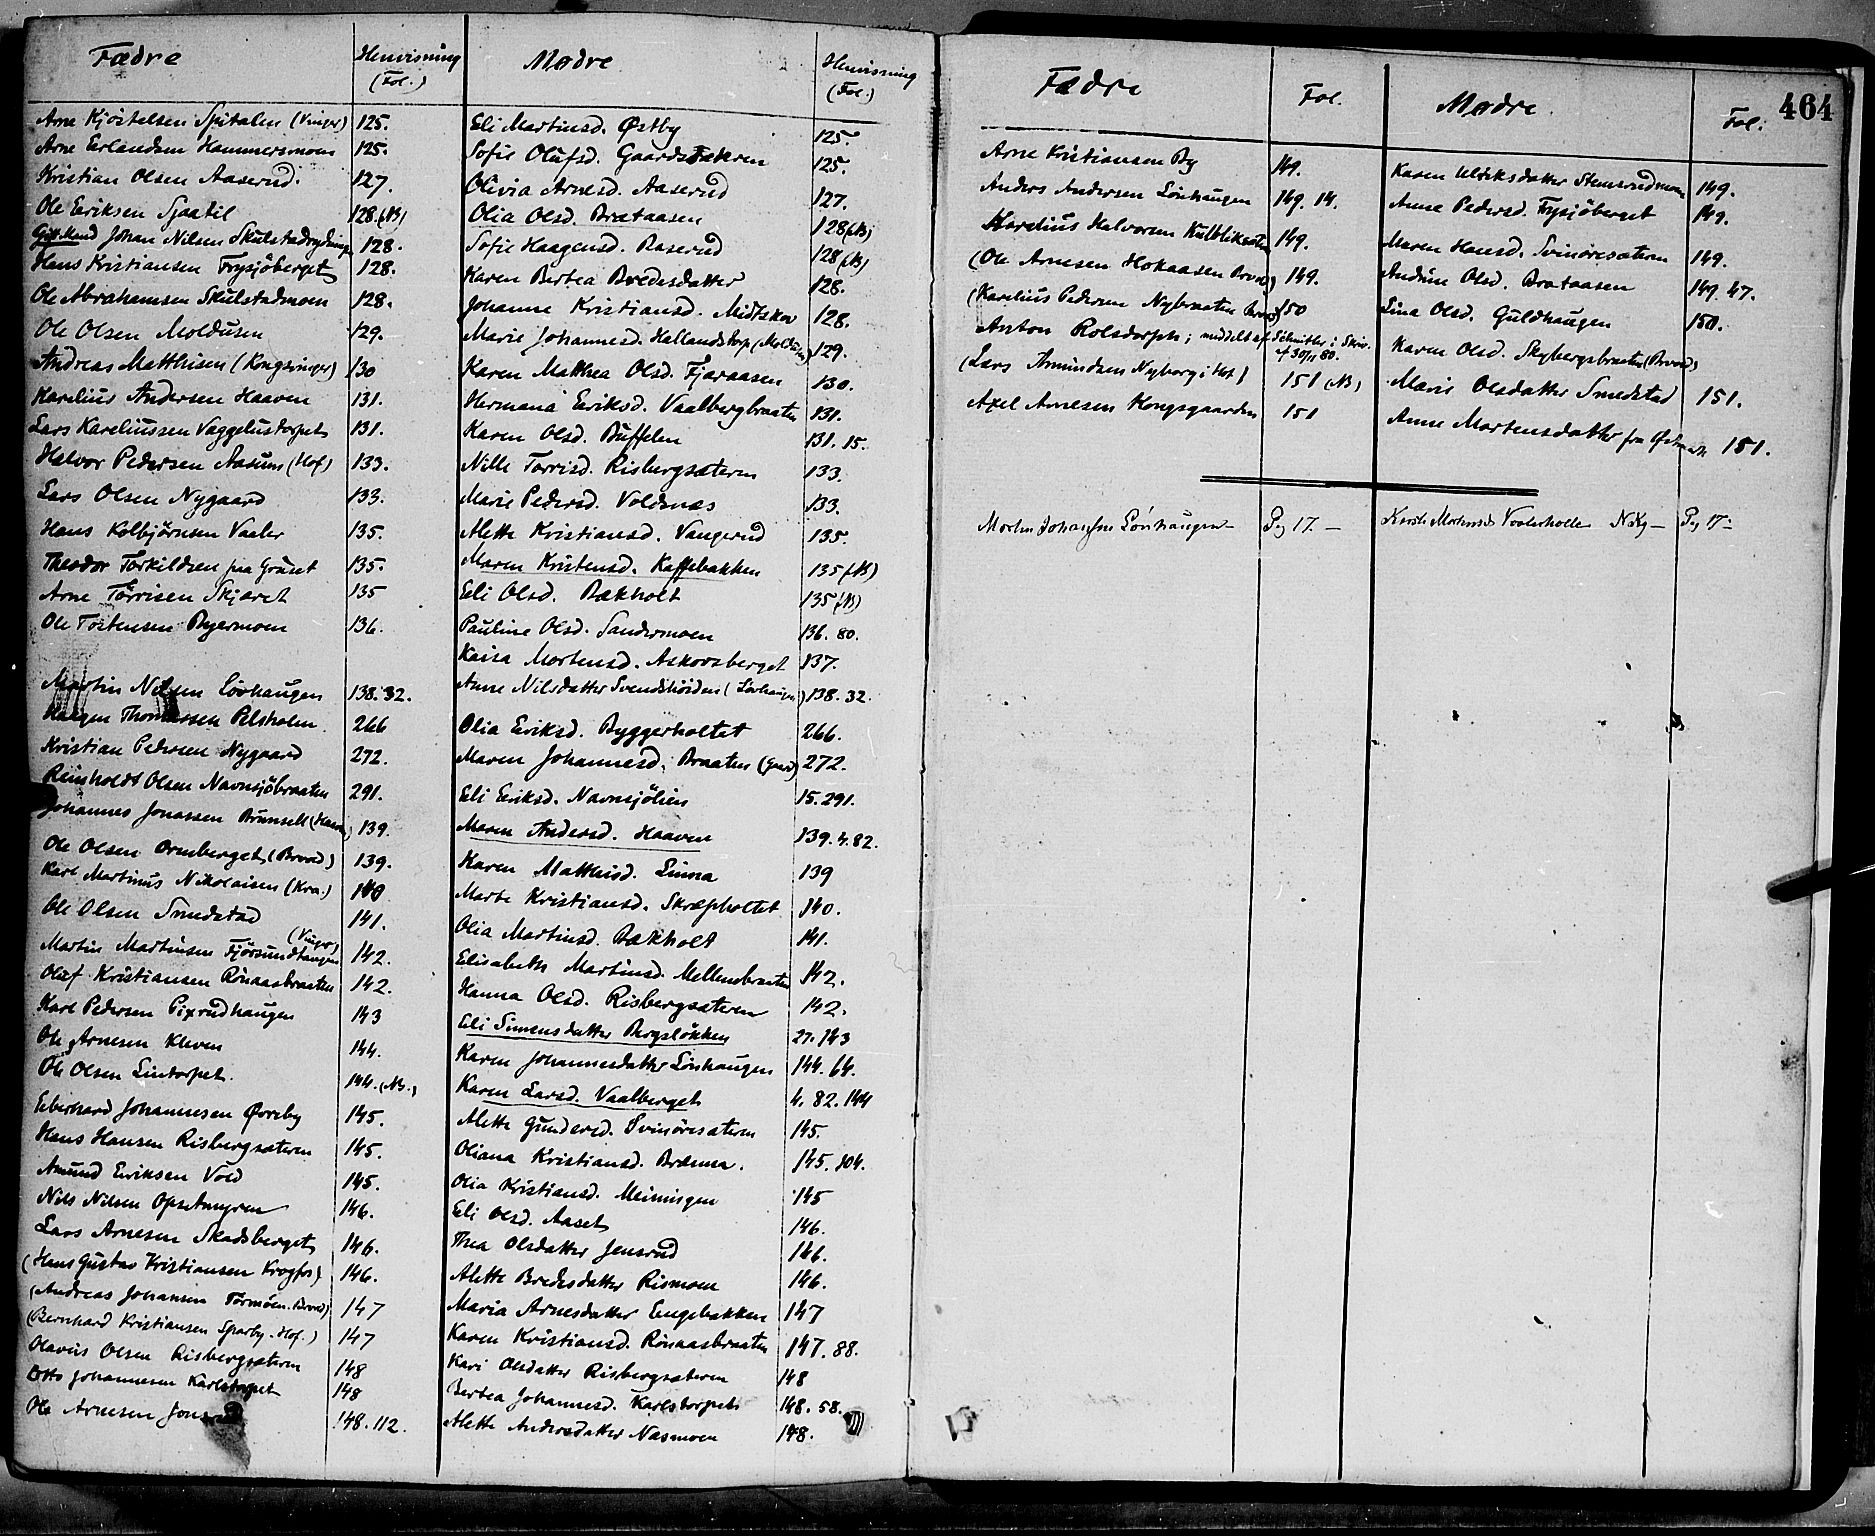 Fædre Henvisning (Fol.) Mødre Henvisning (Fol.)
Arne Kjøstelsen Spitalen (Vinger) 125. Eli Martinsd. Østby 125.
Arne Erlandsen Hammersmoen 125. Sofie Olufsd. Gaardsbakken 125.
Kristian Olsen Aaserud. 127. Olivia Arnesd. Aaserud 127.
Ole Eriksen Sjaatil 128 (NB) Olia Olsd. Brataasen 128 (NB)
Gift Mand Johan Nilsen Skulstadrydning 128. Sofie Haagensd. Baserud 128 (NB)
Hans Kristiansen Frysjöberget 128. Karen Bertea Bredesdatter 128.
Ole Abrahamsen Skulstadmoen 128. Johanne Kristiansd. Midtskov 128.
Ole Olsen Moldusen 129. Marie Johannesd. Hallandstorp (Moldusen) 129.
Andreas Matthisen (Kongsvinger) 130 Karen Mathea Olsd. Fjæraasen 130.
Karelius Andersen Haaven 131. Hermana Eriksd. Vaalbergbraaten 131.
Lars Kareliussen Vaggelustorpet 131. Karen Olsd. Buffelen 131. 15.
Halvor Pedersen Aasum (Hof) 133. Nille Torrisd. Risbergsæteren 133.
Lars Olsen Nygaard 133. Marie Pedersd. Voldnæs 133.
Hans Kolbjørnsen Vaaler 135. Alette Kristiansd. Vangerud 135.
Theodor Torkildsen fra Gruset 135. Maren Kristensd. Kaffebakken 135 (NB)
Arne Törrisen Skjæret 135 Eli Olsd. Bækholt 135 (NB)
Ole Tostensen Byermoen 136. Pauline Olsd. Sandermoen 136. 80.
Kaisa Mortensd. Askovsberget 137.
Martin Nilsen Lövhaugen 138. 32. Anne Nilsdatter Svendshöiden (Lövhaugen) 138. 32.
Haagen Thomassen Pelsholm 266 Olia Eriksd. Byggerholtet 266.
Kristian Pedersen Nygaard 272. Maren Johannesd. Braaten (Grue) 272.
Reinholdt Olsen Navnsjöbraaten 291. Eli Eriksd. Navnsjölien 15. 291.
Johannes Jonassen Brunsell (Haaven) 139. Maren Andersd. Haaven 139. 4. 82.
Ole Olsen Ormberget (Brvod) 139. Karen Mathisd. Linna 139
Karl Martinus Nikolaisen (Kra.) 140 Marte Kristiansd. Skræpholtet 140.
Ole Olsen Smedstad 141. Olia Martinsd. Bækholt 141.
Martin Martinsen Fjörsundhaugen (Vinger) 142. Elisabeth Martinsd. Mellembraaten 142.
Oluf Kristiansen Rönaasbraaten 142. Hanna Olsd. Risbergsæteren 142.
Karl Pedersen Pixrudhaugen 143 Eli Simensdatter Bergslökken 27. 143
Ole Arnesen Kleven 144. Karen Johannesdatter Lönhaugen 144. 64.
Ole Olsen Lintorpet. 144. (NB.) Karen Larsd. Vaalberget 4. 82. 144
Eberhard Johannesen Øvreby 145. Alette Gundersd. Svinöresæteren 145.
Hans Hansen Risbergsæteren 145. Oliana Kristiansd. Brænna. 145. 104.
Amund Eriksen Vold 145. Olia Kristiansd. Meiningen 145
Nils Nilsen Opsetmyren 146. Eli Olsd. Aaset 146.
Lars Arnesen Skadsberget 146. Thea Olsdatter Jensrud 146.
(Hans Gustav Kristiansen Krogfos) 146. Alette Bredesdatter Rismoen 146.
(Andreas Johansen Törmöen. Brvod) 147 Maria Arnesdatter Engebakken 147
(Bernhard Kristiansen Sparby. Hof.) 147 Karen Kristiansd. Rönaasbraaten 147. 88.
Olavus Olsen Risbergsæteren 148 Kari Olsdatter Risbergsæteren 148
Otto Johannesen Karlstorpet 148 Bertea Johannesd. Karlstorpet 148. 58.
Ole Arnesen Jonsrud 148. 112. Alette Andersdatter Næsmoen 148.
464
Fædre Fol. Mødre. Fol.
Arne Kristiansen By 149. Karen Ulriksdatter Stemsrudmoen 149.
Anders Andersen Lönhaugen 149. 14. Anne Pedersd. Frysjöberget 149.
Karelius Halvorsen Kulblikaaten 149. Maren Hansd. Svinöresæteren 149.
(Ole Arnesen Hokaasen Brvod) 149. Andrine Olsd. Brataasen 149. 47.
(Karelius Pedersen Nybraaten Brvod) 150 Lina Olsd. Guldhaugen 150.
Anton Rolsdorph; meddelt af Schnitler i Skriv. af 30/11 80. Karen Olsd. Skybergsbraaten (Brvod)
(Lars Amundsen Nyborg i Hof) 151 (NB) Marie Olsdatter Smedstad 151.
Axel Arnesen Kongsgaarden 151 Anne Mortensdatter fra Østmark 151.
Morten Johansen Lönhaugen Pg 17. Kirsti Mortensd. Vaalerholle N Kg Pg 17.